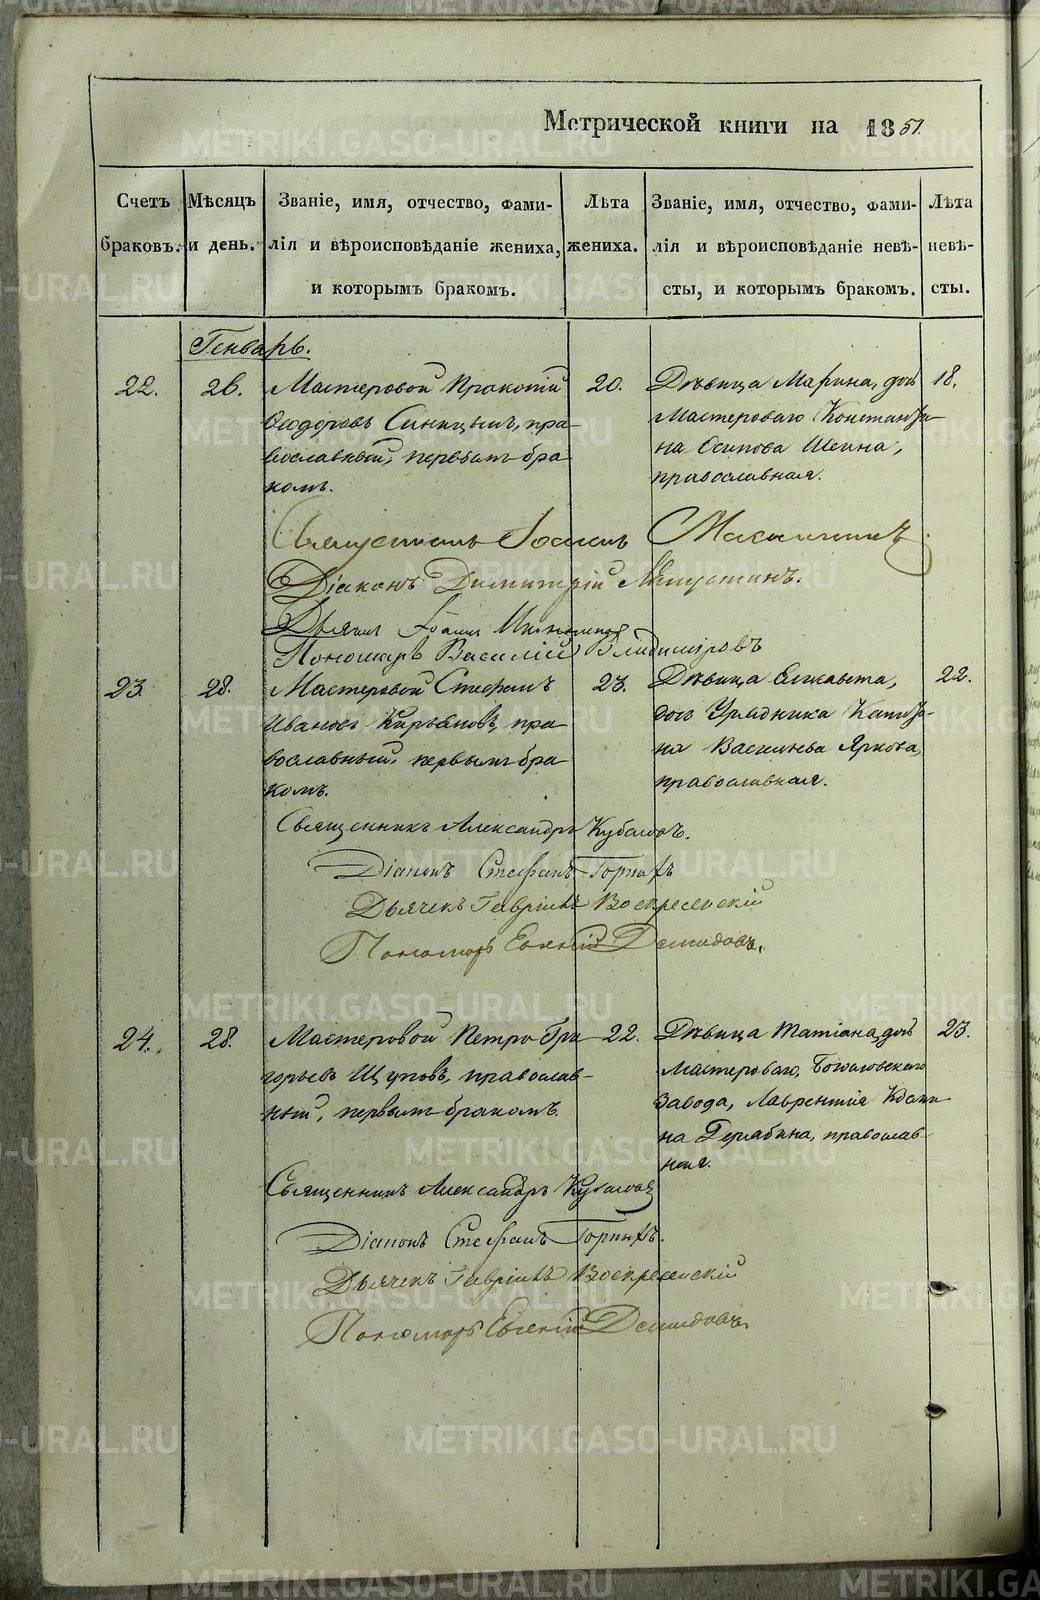 Метрической книги на 1851.
Счетъ браковъ.
Мѣсяцъ и день.
Званіе, имя, отчество, фами-
лія и вѣроисповѣданіе жениха,
и которымъ бракомъ.
Лѣта жениха.
Званіе, имя, отчество, фами-
лія и вѣроисповѣданіе невѣ-
сты, и которымъ бракомъ.
Лѣта невѣ-
сты.
Генварь.
22. 26.
Мастеровой Прокопій
Ѳеодоровъ Синицынъ, пра-
вославный, первымъ бра
комъ.
20.
Дѣвица Марина, дочь
Мастероваго Константи-
на Осипова Шеина,
православная.
18.
Іоаннъ
Діаконъ Димитрій
Іоаннъ
Пономарь Василій
23. 28.
Мастеровой Стефанъ
Ивановъ Кирьяновъ, пра-
вославный, первымъ бра-
комъ.
23.
Дѣвица Елисавета,
дочь Урядника Капито-
на Васильева Яркова,
православная.
22.
Священникъ Александръ
Діаконъ Стефанъ
Дьячекъ Гавріилъ Воскресенскій
Пономарь Евгеній Демидовъ.
24. 28.
Мастеровой Петръ Гри
горьевъ Щуповъ, православ-
ный, первымъ бракомъ.
22.
Дѣвица Татіана, дочь
Мастероваго, Богословскаго
Завода, Лаврентія
на православ-
ная.
23.
Священникъ Александръ
Діаконъ Стефанъ
Дьячекъ Гавріилъ Воскресенскій
Пономарь Евгеній Демидовъ.
METRIKI.GASO-URAL.RU